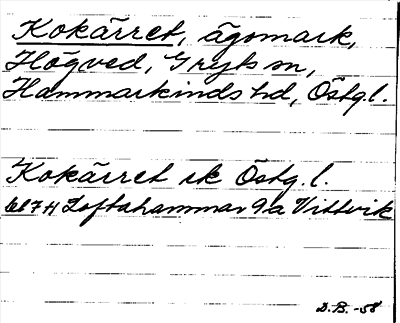 Kokärret, ägomark,
Högved, Gryts sn,
Hammarkinds hd, Östg.l.
Kokärret ek Östg.l.
7H Loftahammar 9a Vittvik
D.B. -58